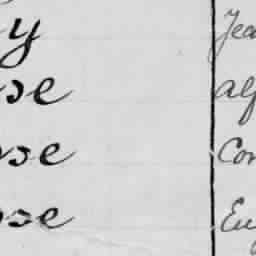 y Jea
se alf
se Con
se Eu